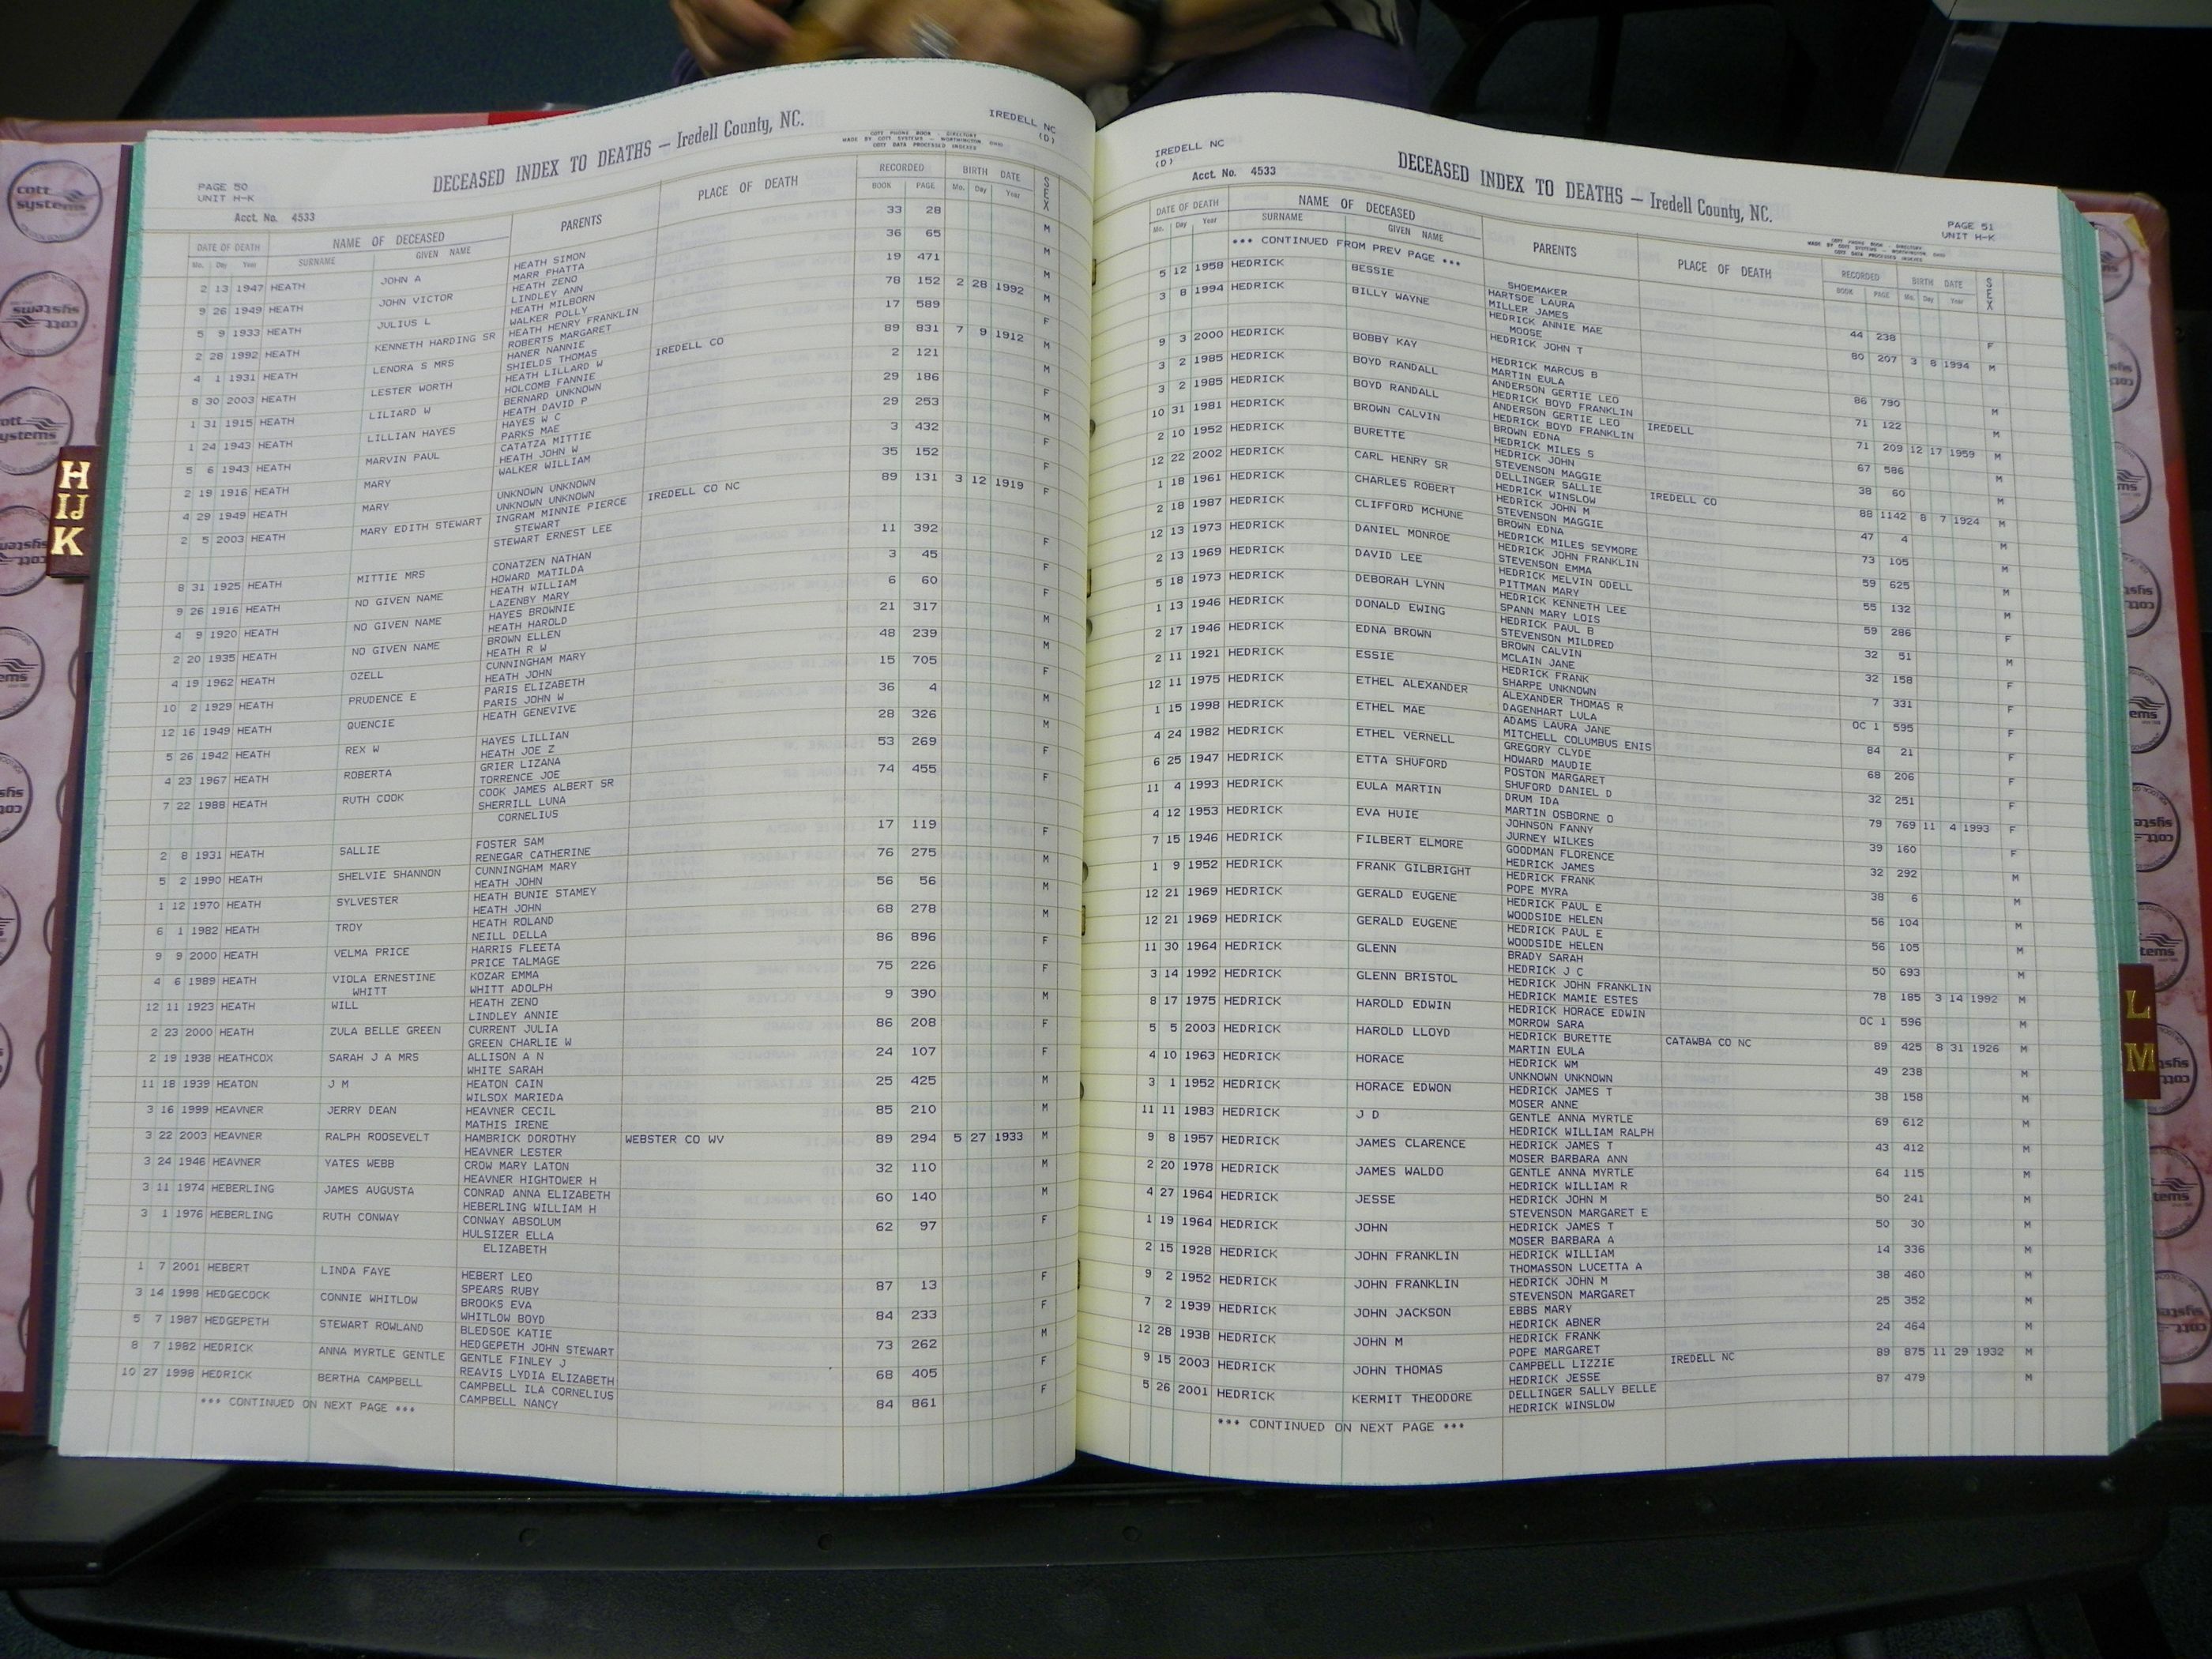 PAGE 50
UNIT H-K
DECEASED INDEX TO DEATHS — Iredell County, NC.
IREDELL NC
(D)
COTT PHONE BOOK - DIRECTORY
MADE BY COTT SYSTEMS - WORTHINGTON OHIO
COTT DATA PROCESSED INDEXES
Acct. No. 4533
DATE OF DEATH NAME OF DECEASED PARENTS PLACE OF DEATH RECORDED BIRTH DATE SEX
Mo. Day Year SURNAME GIVEN NAME BOOK PAGE Mo. Day Year
2 13 1947 HEATH JOHN A HEATH SIMON 33 28 M
MARR PHATTA
9 26 1949 HEATH JOHN VICTOR HEATH ZENO 36 65 M
LINDLEY ANN
5 9 1933 HEATH JULIUS L HEATH MILBORN 19 471 M
WALKER POLLY
2 28 1992 HEATH KENNETH HARDING SR HEATH HENRY FRANKLIN 78 152 2 28 1992 M
ROBERTS MARGARET
4 1 1931 HEATH LENORA S MRS HANER NANNIE 17 589 F
SHIELDS THOMAS
8 30 2003 HEATH LESTER WORTH HEATH LILLARD W IREDELL CO 89 831 7 9 1912 M
HOLCOMB FANNIE
1 31 1915 HEATH LILIARD W BERNARD UNKNOWN 2 121 M
HEATH DAVID P
1 24 1943 HEATH LILLIAN HAYES HAYES W C 29 186 F
PARKS MAE
5 6 1943 HEATH MARVIN PAUL CATATZA MITTIE 29 253 M
HEATH JOHN W
2 19 1916 HEATH MARY WALKER WILLIAM 3 432 F
4 29 1949 HEATH MARY UNKNOWN UNKNOWN 35 152 F
UNKNOWN UNKNOWN
2 5 2003 HEATH MARY EDITH STEWART INGRAM MINNIE PIERCE IREDELL CO NC 89 131 3 12 1919 F
STEWART
STEWART ERNEST LEE
8 31 1925 HEATH MITTIE MRS CONATZEN NATHAN 11 392 F
HOWARD MATILDA
9 26 1916 HEATH NO GIVEN NAME HEATH WILLIAM 3 45 F
LAZENBY MARY
4 9 1920 HEATH NO GIVEN NAME HAYES BROWNIE 6 60 F
HEATH HAROLD
2 20 1935 HEATH NO GIVEN NAME BROWN ELLEN 21 317 M
HEATH R W
4 19 1962 HEATH OZELL CUNNINGHAM MARY 48 239 M
HEATH JOHN
10 2 1929 HEATH PRUDENCE E PARIS ELIZABETH 15 705 F
PARIS JOHN W
12 16 1949 HEATH QUENCIE HEATH GENEVIVE 36 4 M
5 26 1942 HEATH REX W HAYES LILLIAN 28 326 M
HEATH JOE Z
4 23 1967 HEATH ROBERTA GRIER LIZANA 53 269 F
TORRENCE JOE
7 22 1988 HEATH RUTH COOK COOK JAMES ALBERT SR 74 455 F
SHERRILL LUNA
CORNELIUS
2 8 1931 HEATH SALLIE FOSTER SAM 17 119 F
RENEGAR CATHERINE
5 2 1990 HEATH SHELVIE SHANNON CUNNINGHAM MARY 76 275 M
HEATH JOHN
1 12 1970 HEATH SYLVESTER HEATH BUNIE STAMEY 56 56 M
HEATH JOHN
6 1 1982 HEATH TROY HEATH ROLAND 68 278 M
NEILL DELLA
9 9 2000 HEATH VELMA PRICE HARRIS FLEETA 86 896 F
PRICE TALMAGE
4 6 1989 HEATH VIOLA ERNESTINE KOZAR EMMA 75 226 F
WHITT WHITT ADOLPH
12 11 1923 HEATH WILL HEATH ZENO 9 390 M
LINDLEY ANNIE
2 23 2000 HEATH ZULA BELLE GREEN CURRENT JULIA 86 208 F
GREEN CHARLIE W
2 19 1938 HEATHCOX SARAH J A MRS ALLISON A N 24 107 F
WHITE SARAH
11 18 1939 HEATON J M HEATON CAIN 25 425 M
WILSOX MARIEDA
3 16 1999 HEAVNER JERRY DEAN HEAVNER CECIL 85 210 M
MATHIS IRENE
3 22 2003 HEAVNER RALPH ROOSEVELT HAMBRICK DOROTHY WEBSTER CO WV 89 294 5 27 1933 M
HEAVNER LESTER
3 24 1946 HEAVNER YATES WEBB CROW MARY LATON 32 110 M
HEAVNER HIGHTOWER H
3 11 1974 HEBERLING JAMES AUGUSTA CONRAD ANNA ELIZABETH 60 140 M
HEBERLING WILLIAM H
3 1 1976 HEBERLING RUTH CONWAY CONWAY ABSOLUM 62 97 F
HULSIZER ELLA
ELIZABETH
1 7 2001 HEBERT LINDA FAYE HEBERT LEO 87 13 F
SPEARS RUBY
3 14 1998 HEDGECOCK CONNIE WHITLOW BROOKS EVA 84 233 F
WHITLOW BOYD
5 7 1987 HEDGEPETH STEWART ROWLAND BLEDSOE KATIE 73 262 M
HEDGEPETH JOHN STEWART
8 7 1982 HEDRICK ANNA MYRTLE GENTLE GENTLE FINLEY J 68 405 F
REAVIS LYDIA ELIZABETH
10 27 1998 HEDRICK BERTHA CAMPBELL CAMPBELL ILA CORNELIUS 84 861 F
CAMPBELL NANCY
*** CONTINUED ON NEXT PAGE ***
IREDELL NC
(D)
DECEASED INDEX TO DEATHS — Iredell County, NC.
PAGE 51
UNIT H-K
Acct. No. 4533
COTT PHONE BOOK - DIRECTORY
MADE BY COTT SYSTEMS - WORTHINGTON OHIO
COTT DATA PROCESSED INDEXES
DATE OF DEATH NAME OF DECEASED PARENTS PLACE OF DEATH RECORDED BIRTH DATE SEX
Mo. Day Year SURNAME GIVEN NAME BOOK PAGE Mo. Day Year
*** CONTINUED FROM PREV PAGE ***
SHOEMAKER
5 12 1958 HEDRICK BESSIE HARTSOE LAURA 44 238 F
MILLER JAMES
3 8 1994 HEDRICK BILLY WAYNE HEDRICK ANNIE MAE 80 207 3 8 1994 M
MOOSE
HEDRICK JOHN T
9 3 2000 HEDRICK BOBBY KAY HEDRICK MARCUS B 86 790 M
MARTIN EULA
3 2 1985 HEDRICK BOYD RANDALL ANDERSON GERTIE LEO IREDELL 71 122 M
HEDRICK BOYD FRANKLIN
3 2 1985 HEDRICK BOYD RANDALL ANDERSON GERTIE LEO 71 209 12 17 1959 M
HEDRICK BOYD FRANKLIN
10 31 1981 HEDRICK BROWN CALVIN BROWN EDNA 67 586 M
HEDRICK MILES S
2 10 1952 HEDRICK BURETTE HEDRICK JOHN 38 60 M
STEVENSON MAGGIE
12 22 2002 HEDRICK CARL HENRY SR DELLINGER SALLIE IREDELL CO 88 1142 8 7 1924 M
HEDRICK WINSLOW
1 18 1961 HEDRICK CHARLES ROBERT HEDRICK JOHN M 47 4 M
STEVENSON MAGGIE
2 18 1987 HEDRICK CLIFFORD MCHUNE BROWN EDNA 73 105 M
HEDRICK MILES SEYMORE
12 13 1973 HEDRICK DANIEL MONROE HEDRICK JOHN FRANKLIN 59 625 M
STEVENSON EMMA
2 13 1969 HEDRICK DAVID LEE HEDRICK MELVIN ODELL 55 132 M
PITTMAN MARY
5 18 1973 HEDRICK DEBORAH LYNN HEDRICK KENNETH LEE 59 286 F
SPANN MARY LOIS
1 13 1946 HEDRICK DONALD EWING HEDRICK PAUL B 32 51 M
STEVENSON MILDRED
2 17 1946 HEDRICK EDNA BROWN BROWN CALVIN 32 158 F
MCLAIN JANE
2 11 1921 HEDRICK ESSIE HEDRICK FRANK 7 331 F
SHARPE UNKNOWN
12 11 1975 HEDRICK ETHEL ALEXANDER ALEXANDER THOMAS R OC 1 595 F
DAGENHART LULA
1 15 1998 HEDRICK ETHEL MAE ADAMS LAURA JANE 84 21 F
MITCHELL COLUMBUS ENIS
4 24 1982 HEDRICK ETHEL VERNELL GREGORY CLYDE 68 206 F
HOWARD MAUDIE
6 25 1947 HEDRICK ETTA SHUFORD POSTON MARGARET 32 251 F
SHUFORD DANIEL D
11 4 1993 HEDRICK EULA MARTIN DRUM IDA 79 769 11 4 1993 F
MARTIN OSBORNE O
4 12 1953 HEDRICK EVA HUIE JOHNSON FANNY 39 160 F
JURNEY WILKES
7 15 1946 HEDRICK FILBERT ELMORE GOODMAN FLORENCE 32 292 M
HEDRICK JAMES
1 9 1952 HEDRICK FRANK GILBRIGHT HEDRICK FRANK 38 6 M
POPE MYRA
12 21 1969 HEDRICK GERALD EUGENE HEDRICK PAUL E 56 104 M
WOODSIDE HELEN
12 21 1969 HEDRICK GERALD EUGENE HEDRICK PAUL E 56 105 M
WOODSIDE HELEN
11 30 1964 HEDRICK GLENN BRADY SARAH 50 693 M
HEDRICK J C
3 14 1992 HEDRICK GLENN BRISTOL HEDRICK JOHN FRANKLIN 78 185 3 14 1992 M
HEDRICK MAMIE ESTES
8 17 1975 HEDRICK HAROLD EDWIN HEDRICK HORACE EDWIN OC 1 596 M
MORROW SARA
5 5 2003 HEDRICK HAROLD LLOYD HEDRICK BURETTE CATAWBA CO NC 89 425 8 31 1926 M
MARTIN EULA
4 10 1963 HEDRICK HORACE HEDRICK WM 49 238 M
UNKNOWN UNKNOWN
3 1 1952 HEDRICK HORACE EDWON HEDRICK JAMES T 38 158 M
MOSER ANNE
11 11 1983 HEDRICK J D GENTLE ANNA MYRTLE 69 612 M
HEDRICK WILLIAM RALPH
9 8 1957 HEDRICK JAMES CLARENCE HEDRICK JAMES T 43 412 M
MOSER BARBARA ANN
2 20 1978 HEDRICK JAMES WALDO GENTLE ANNA MYRTLE 64 115 M
HEDRICK WILLIAM R
4 27 1964 HEDRICK JESSE HEDRICK JOHN M 50 241 M
STEVENSON MARGARET E
1 19 1964 HEDRICK JOHN HEDRICK JAMES T 50 30 M
MOSER BARBARA A
2 15 1928 HEDRICK JOHN FRANKLIN HEDRICK WILLIAM 14 336 M
THOMASSON LUCETTA A
9 2 1952 HEDRICK JOHN FRANKLIN HEDRICK JOHN M 38 460 M
STEVENSON MARGARET
7 2 1939 HEDRICK JOHN JACKSON EBBS MARY 25 352 M
HEDRICK ABNER
12 28 1938 HEDRICK JOHN M HEDRICK FRANK 24 464 M
POPE MARGARET
9 15 2003 HEDRICK JOHN THOMAS CAMPBELL LIZZIE IREDELL NC 89 875 11 29 1932 M
HEDRICK JESSE
5 26 2001 HEDRICK KERMIT THEODORE DELLINGER SALLY BELLE 87 479 M
HEDRICK WINSLOW
*** CONTINUED ON NEXT PAGE ***
H
IJ
K
L
M
cott
systems